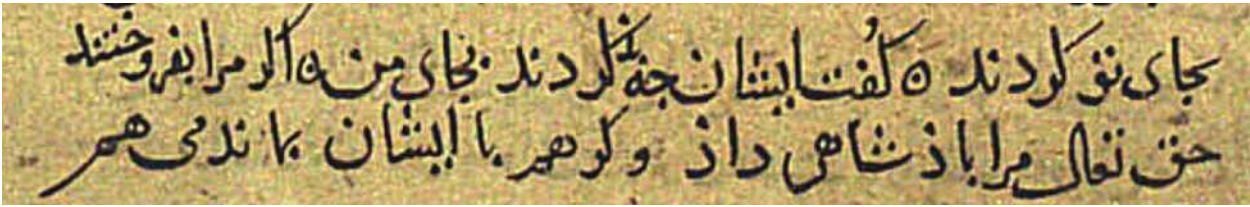 بجای تو کردند ه گفت ایشان جه کردند بجای من ه اگر مرا بفروختند
حق تعالی مرا باذشاهی داذ و گر هم با ایشان بماندمی هم